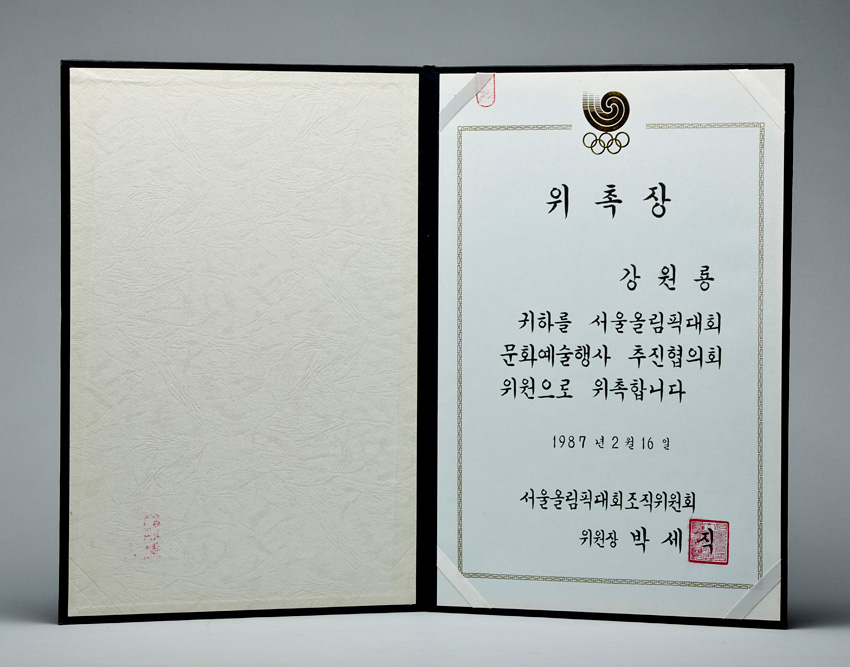 위 촉 장
강 원 룡
귀하를 서울올림픽대회
문화예술행사 추진협의회
위원으로 위촉합니다
1987 년 2 월 16 일
서울올림픽대회조직위원회
위원장 박 세 직